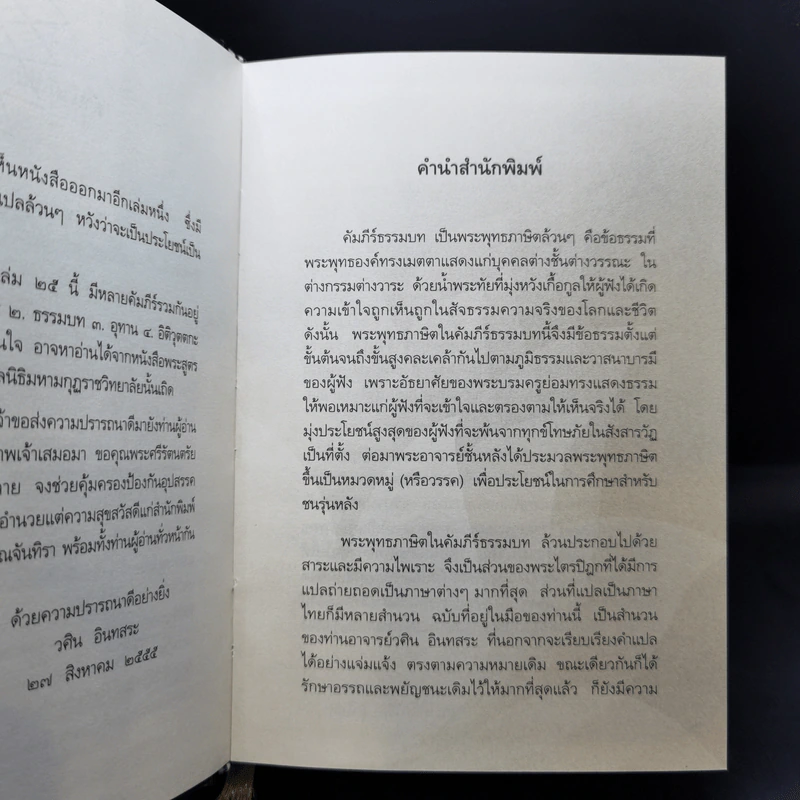 ห็นหนังสือออกมาอีกเล่มหนึ่ง ซึ่งมี
แปลล้วนๆ หวังว่าจะเป็นประโยชน์เป็น
ล่ม ๒๕ นี้ มีหลายคัมภีร์รวมกันอยู่
๒. ธรรมบท ๓. อุทาน ๔. อิติวุตตกะ
นใจ อาจหาอ่านได้จากหนังสือพระสูตร
ลนิธิมหามกุฏราชวิทยาลัยนั้นเถิด
จ้าขอส่งความปรารถนาดีมายังท่านผู้อ่าน
าพเจ้าเสมอมา ขอคุณพระศรีรัตนตรัย
าย จงช่วยคุ้มครองป้องกันอุปสรรค
อำนวยแต่ความสุขสวัสดีแก่สำนักพิมพ์
ณจันทิรา พร้อมทั้งท่านผู้อ่านทั่วหน้ากัน
ด้วยความปรารถนาดีอย่างยิ่ง
วศิน อินทสระ
๒๗ สิงหาคม ๒๕๕๕
คำนำสำนักพิมพ์
คัมภีร์ธรรมบท เป็นพระพุทธภาษิตล้วนๆ คือข้อธรรมที่
พระพุทธองค์ทรงเมตตาแสดงแก่บุคคลต่างชั้นต่างวรรณะ ใน
ต่างกรรมต่างวาระ ด้วยน้ำพระทัยที่มุ่งหวังเกื้อกูลให้ผู้ฟังได้เกิด
ความเข้าใจถูกเห็นถูกในสัจธรรมความจริงของโลกและชีวิต
ดังนั้น พระพุทธภาษิตในคัมภีร์ธรรมบทนี้จึงมีข้อธรรมตั้งแต่
ขั้นต้นจนถึงขั้นสูงคละเคล้ากันไปตามภูมิธรรมและวาสนาบารมี
ของผู้ฟัง เพราะอัธยาศัยของพระบรมครูย่อมทรงแสดงธรรม
ให้พอเหมาะแก่ผู้ฟังที่จะเข้าใจและตรองตามให้เห็นจริงได้ โดย
มุ่งประโยชน์สูงสุดของผู้ฟังที่จะพ้นจากทุกข์โทษภัยในสังสารวัฏ
เป็นที่ตั้ง ต่อมาพระอาจารย์ชั้นหลังได้ประมวลพระพุทธภาษิต
ขึ้นเป็นหมวดหมู่ (หรือวรรค) เพื่อประโยชน์ในการศึกษาสำหรับ
ชนรุ่นหลัง
พระพุทธภาษิตในคัมภีร์ธรรมบท ล้วนประกอบไปด้วย
สาระและมีความไพเราะ จึงเป็นส่วนของพระไตรปิฎกที่ได้มีการ
แปลถ่ายถอดเป็นภาษาต่างๆ มากที่สุด ส่วนที่แปลเป็นภาษา
ไทยก็มีหลายสำนวน ฉบับที่อยู่ในมือของท่านนี้ เป็นสำนวน
ของท่านอาจารย์วศิน อินทสระ ที่นอกจากจะเรียบเรียงคำแปล
ได้อย่างแจ่มแจ้ง ตรงตามความหมายเดิม ขณะเดียวกันก็ได้
รักษาอรรถและพยัญชนะเดิมไว้ให้มากที่สุดแล้ว ก็ยังมีความ